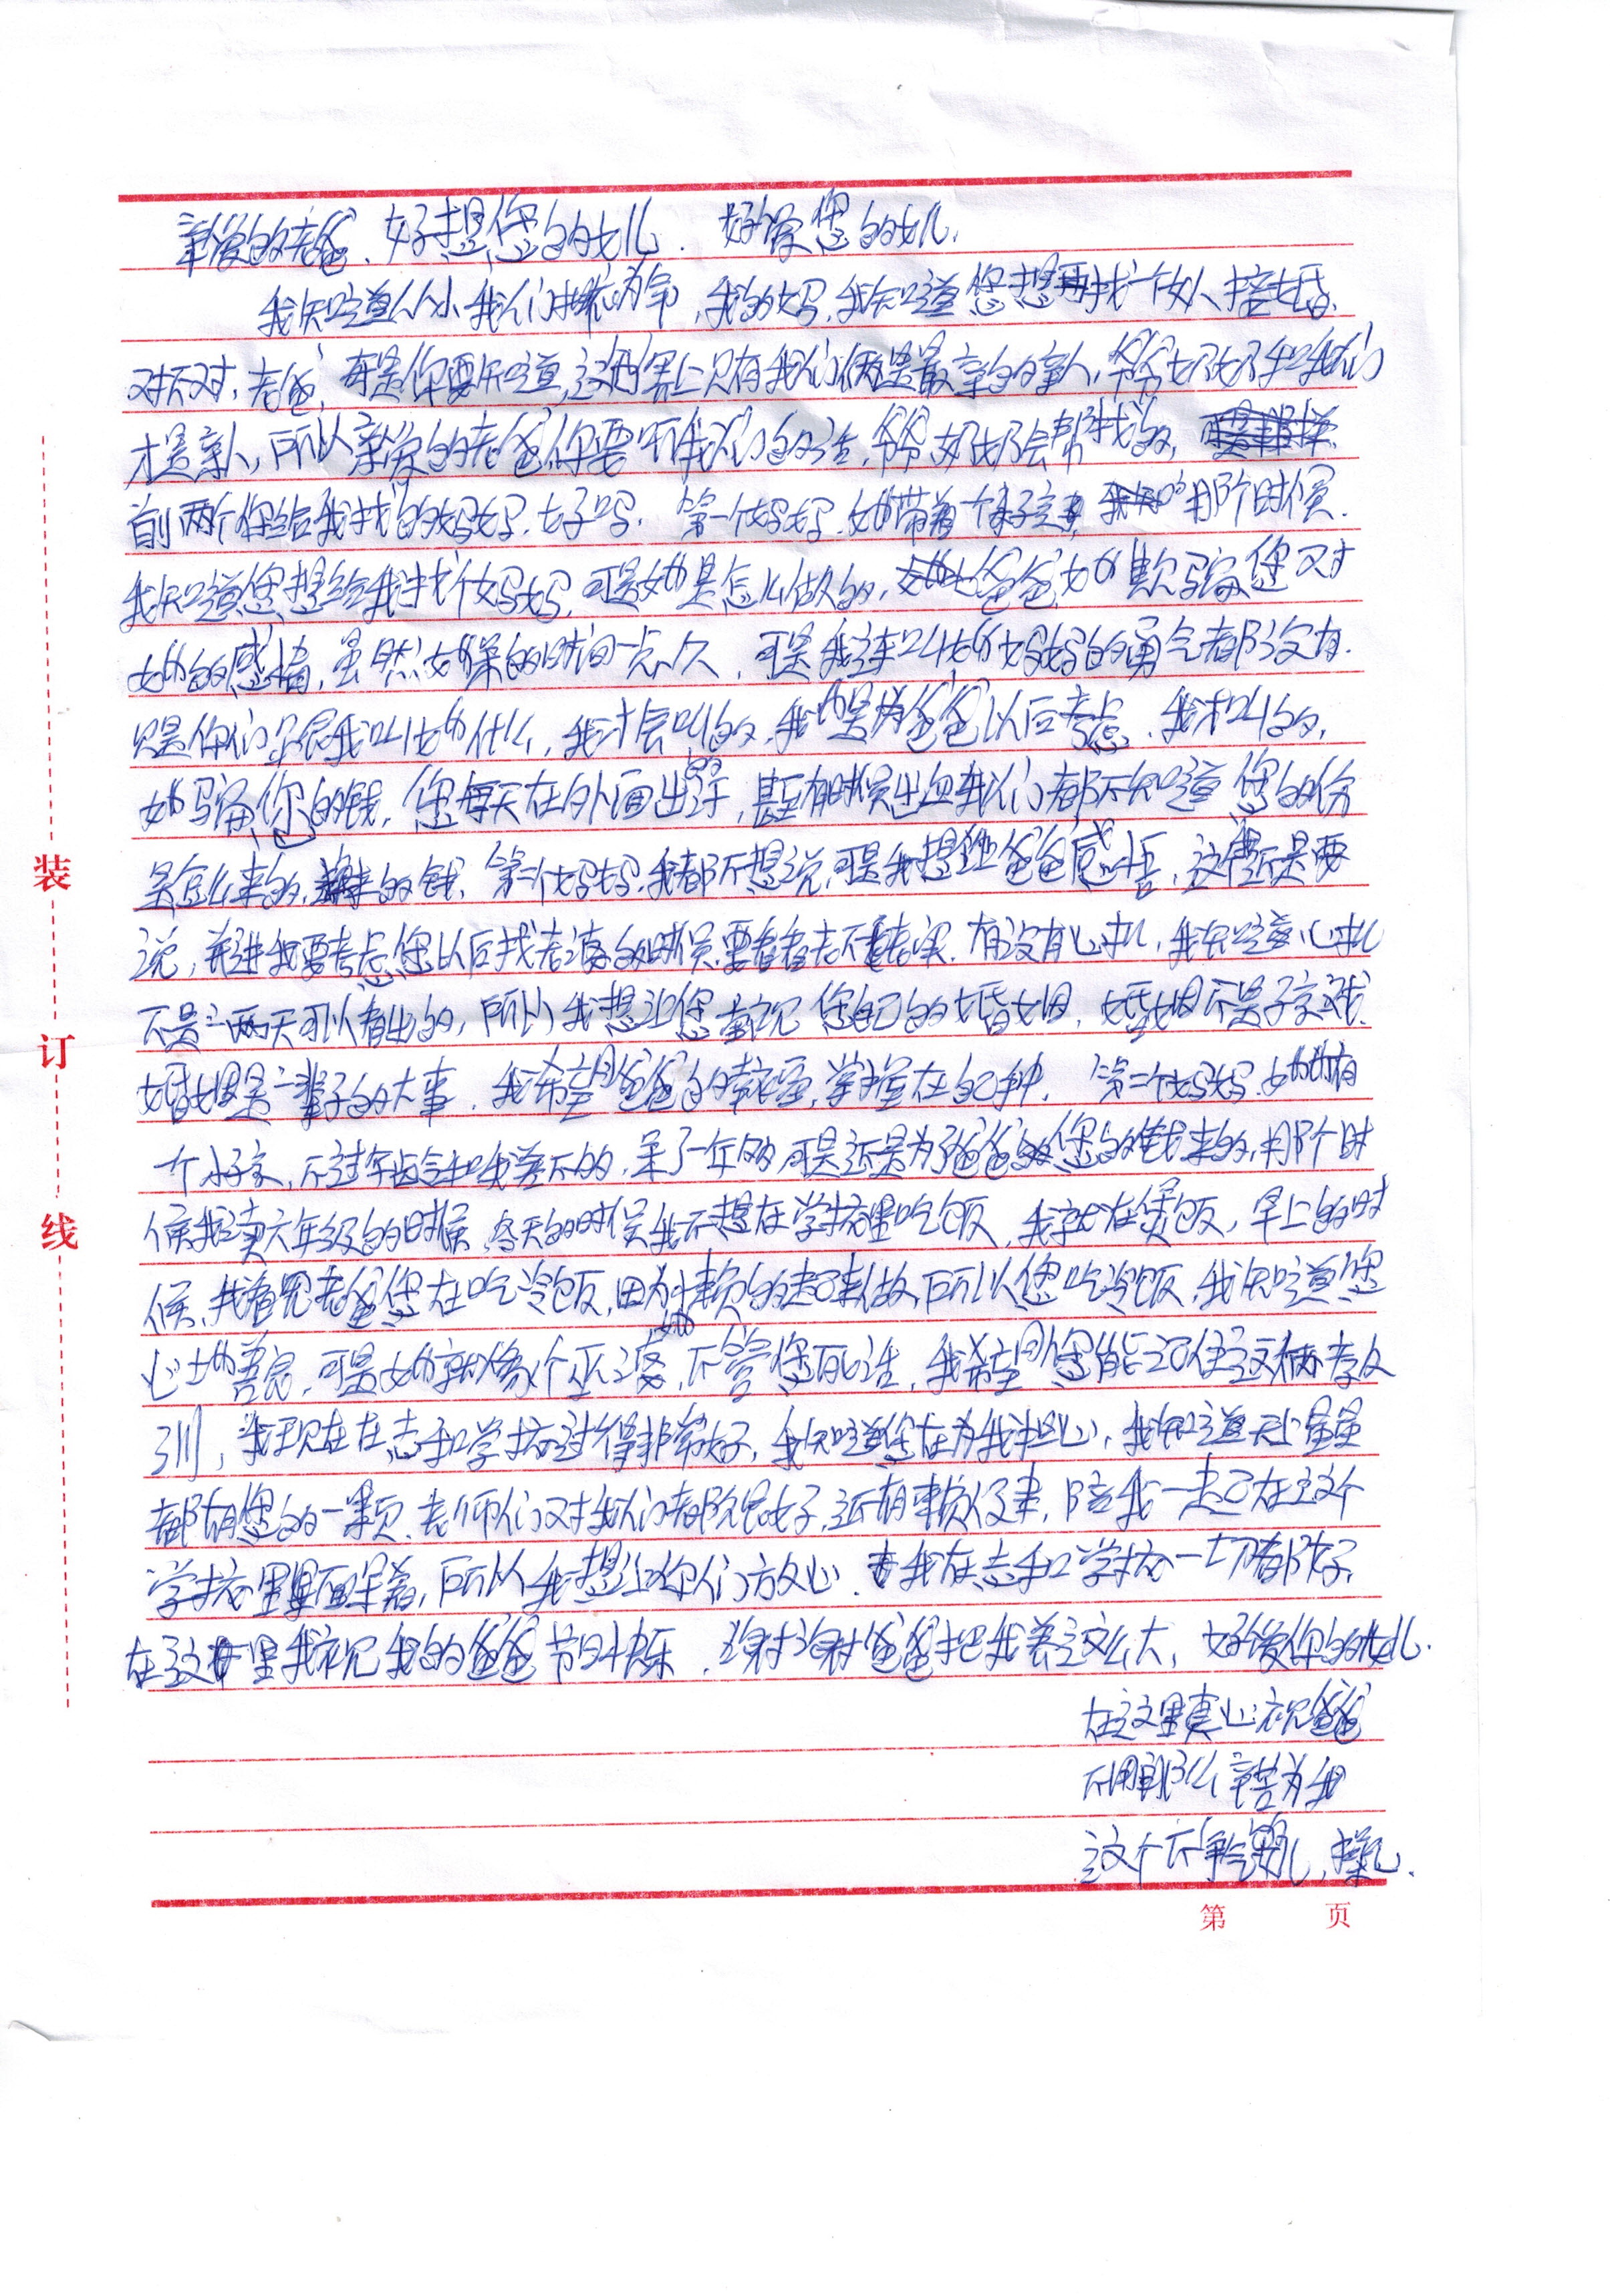 亲爱的老爸、好想您的女儿. 好爱您的女儿.
我知道从小我们相依为命,我的妈,我知道您想再找一个女人结婚.
对不对,老爸,可是你要知道,这世界上只有我们俩是最亲的亲人,爷爷奶奶和我们
才是亲人,所以亲爱的老爸你要听我们的话,爷爷奶奶会帮找的,
前两个您给我找的妈妈.好吗. 第一个妈妈.她带着一个孩子来,那个时候.
我知道您想给我找个妈妈.可是她是怎么做的,爸爸她欺骗您对
她的感情,虽然她呆的时间一点久,可是我连叫她妈妈的勇气都没有.
只是你们跟我叫她什么,我才会叫的,我是为爸爸以后考虑.我才叫的,
她骗你的钱,您每天在外面出汗,甚至有时候出血我们都不知道您的伤
是怎么来的,的钱. 第二个妈妈.我都不想说,可是我想让爸爸感悟,这里还是要
说,并进我要考虑您以后找老婆的时候要看看老不老实.有没有心机,我知道心机
不是一两天可以看出的,所以我想让您重视您自己的婚姻,婚姻不是子京戏.
婚姻是一辈子的大事.我希望爸爸的幸福,掌握在自己手中. 第二个妈妈.她也有
一个小子京,不过年龄和我差不多,呆了一年多可是还是为了爸爸您的钱来的,那个时
候我读六年级的时候,冬天的时候我不想在学校里吃饭,我就在煲饭,早上的时
候,我看见老爸您在吃冷饭,因为懒的起来做,所以您吃冷饭.我知道您
心地善良,可是她就像个巫婆,她不管您死活,我希望您能记住这两次教
训,我现在在志和学校过得非常好,我知道您在为我担心,我知道天上星星
都有您的一颗.老师们对我们都很好,还有赖俊来,陪我一起在这个
学校里面呆着,所以我想让你们放心.我在志和学校一切都好,
在这里我祝我的爸爸节日快乐.谢谢爸爸把我养这么大,好爱你的女儿.
在这里真心祝爸爸
不用那么辛苦为我
这个不争气的女儿,操心.
装
订
线
第 页